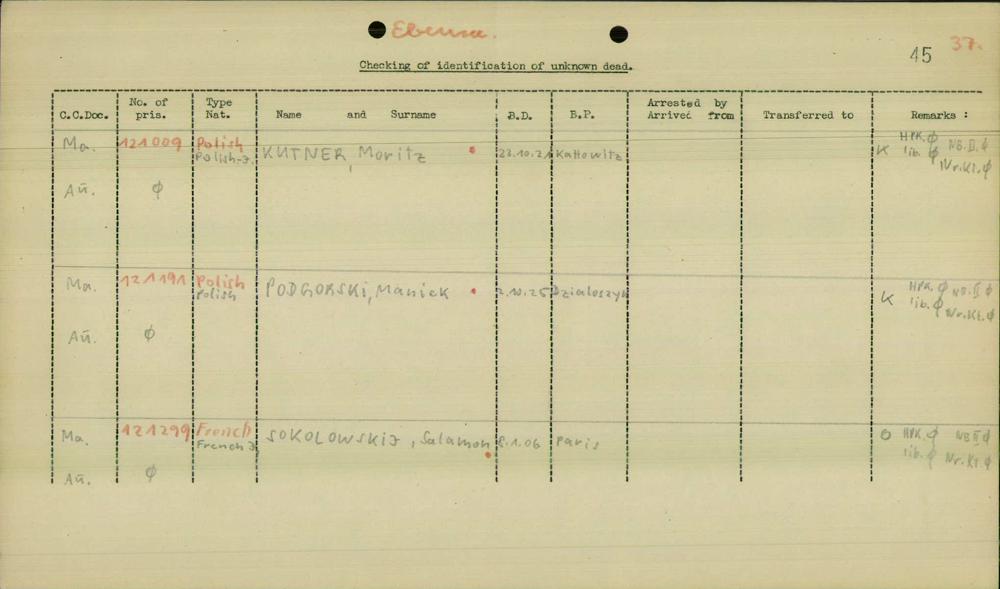 Ebensee.
45 37.
Checking of identification of unknown dead.
C.C.Doc. No. of pris. Type Nat. Name and Surname B.D. B.P. Arrested by Arrived from Transferred to Remarks :
Ma. 121009 Polish KUTNER, Moritz 22.10.21 Kattowitz K HPK. ϕ NB.II. ϕ
Polish-J. lib. ϕ Nr.Kt. ϕ
Aū. ϕ
Ma. 121191 Polish PODGORSKI, Maniek 2.10.25 Dzialoszyn K HPK. ϕ NB.II ϕ
Polish lib. ϕ Nr.Kt. ϕ
Aū. ϕ
Ma. 121299 French SOKOLOWSKIJ, Salamon 8.1.06 Paris O HPK. ϕ NB II ϕ
French J. lib. ϕ Nr.Kt. ϕ
Aū. ϕ